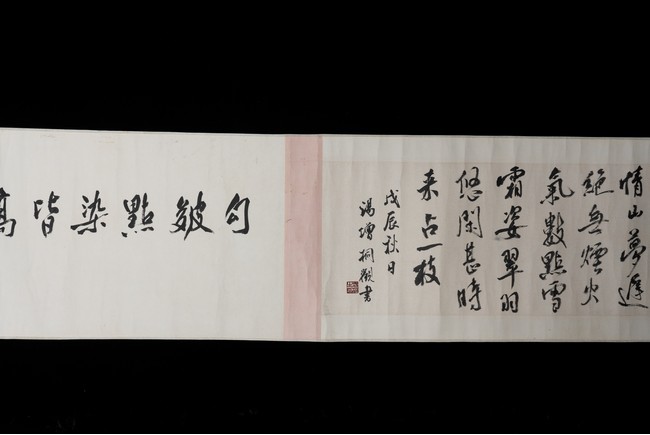 情山夢遲
絕無煙火
氣數點雪
霜姿翠羽
悠閑甚時
來占一枝
戊辰秋日
湯增桐書
勾皴點染皆高